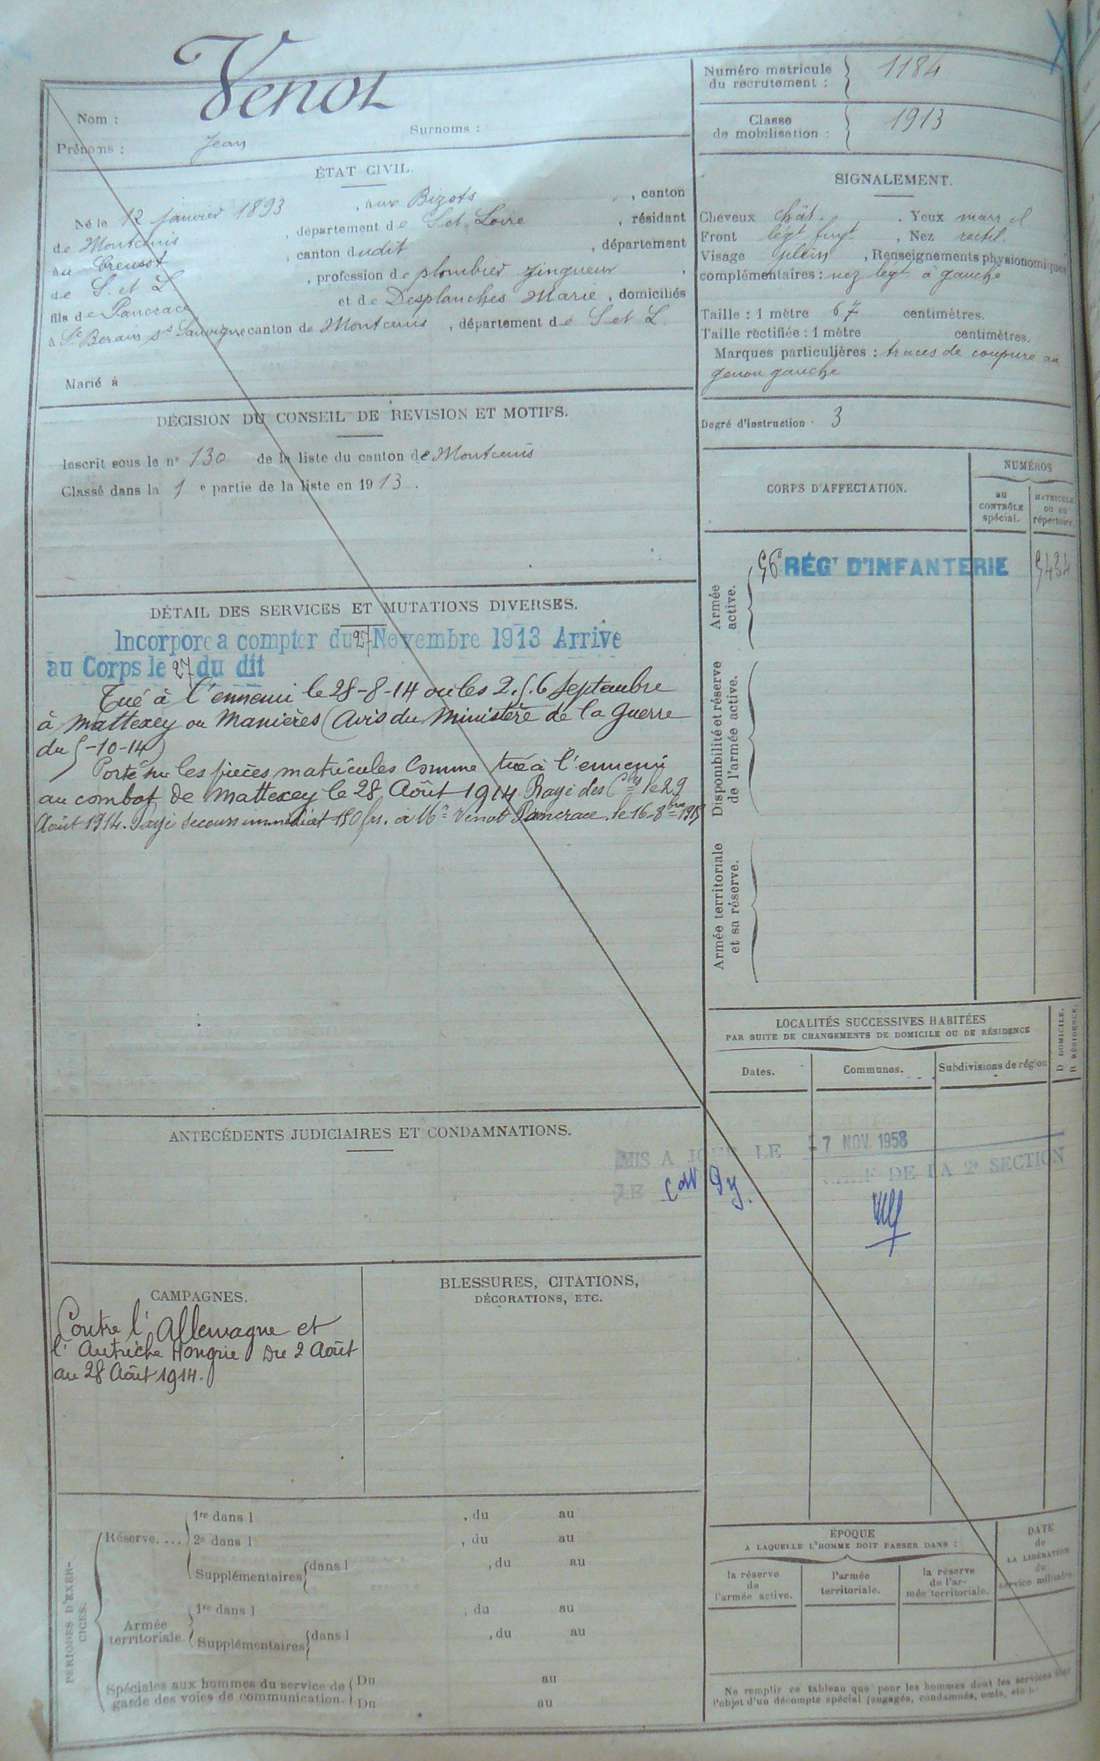 Venot
Nom :
Prénoms : Jean
Surnoms :
ÉTAT CIVIL.
Né le 12 janvier 1893, aux Bizots, canton
de Montcenis, département de S. et Loire, résidant
au Creusot, canton dudit, département
de S. et L, profession de plombier zingueur,
fils de Pancrace et de Desplanches Marie, domiciliés
à St Berain s/s Sanvignes canton de Montcenis, département de S et L.
Marié à
DÉCISION DU CONSEIL DE REVISION ET MOTIFS.
Inscrit sous le n° 130 de la liste du canton de Montcenis
Classé dans la 1e partie de la liste en 1913.
DÉTAIL DES SERVICES ET MUTATIONS DIVERSES.
Incorpore a compter du 27 Novembre 1913 Arrive
au Corps le 27 du dit
Tué à l'ennemi le 28-8-14 ou les 2.5.6 Septembre
à Mattexey ou Manières (Avis du Ministère de la Guerre
du 5-10-14)
Porté sur les pièces matricules comme tué à l'ennemi
au combat de Mattexey le 28 Août 1914 Rayé des Cles le 29
Août 1914. Payé secours immédiat 150 frs. à Mr Venot Pancrace le 16-8bre 1915
ANTECÉDENTS JUDICIAIRES ET CONDAMNATIONS.
CAMPAGNES.
Contre l'Allemagne et
l'Autriche Hongrie Du 2 Août
au 28 Août 1914.
BLESSURES, CITATIONS,
DÉCORATIONS, ETC.
PERIODES D'EXERCICES.
Réserve....
1re dans l , du au
2e dans l , du au
Supplémentaires dans l , du au
Armée
territoriale
1re dans l , du au
Supplémentaires dans l , du au
Spéciales aux hommes du service de Du au
garde des voies de communication. Du au
Numéro matricule
du recrutement : 1184
Classe
de mobilisation : 1913
SIGNALEMENT.
Cheveux chât. Yeux marr. cl
Front légt fuyt, Nez rectil.
Visage plein, Renseignements physionomiques
complémentaires : nez légt à gauche
Taille : 1 mètre 67 centimètres.
Taille rectifiée : 1 mètre centimètres.
Marques particulières : traces de coupure au
genou gauche
Degré d'instruction : 3
CORPS D'AFFECTATION.
NUMÉROS
AU
CONTRÔLE
spécial.
MATRICULE
OU AU
répertoire.
Armée
active.
56e RÉGt D'INFANTERIE 5434
Disponibilité et réserve
de l'armée active.
Armée territoriale
et sa réserve.
LOCALITÉS SUCCESSIVES HABITÉES
PAR SUITE DE CHANGEMENTS DE DOMICILE OU DE RÉSIDENCE
D. DOMICILE.
R. RÉSIDENCE.
Dates.
Communes.
Subdivisions de région
MIS A JOUR LE -7 NOV. 1958
LE DE LA 2e SECTION
ÉPOQUE
A LAQUELLE L'HOMME DOIT PASSER DANS :
la réserve
de
l'armée active.
l'armée
territoriale.
la réserve
de l'ar-
mée territoriale.
DATE
de
LA LIBÉRATION
du
service militaire.
Ne remplir ce tableau que pour les hommes dont les services font
l'objet d'un décompte spécial (engagés, condamnés, omis, etc.).